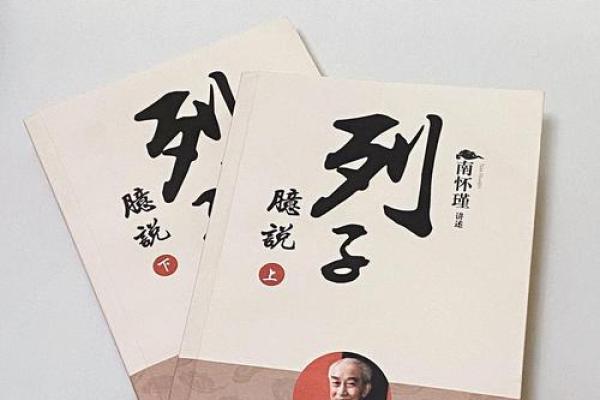 列子
臆説
下
列子
臆説
上
南怀瑾
讲述